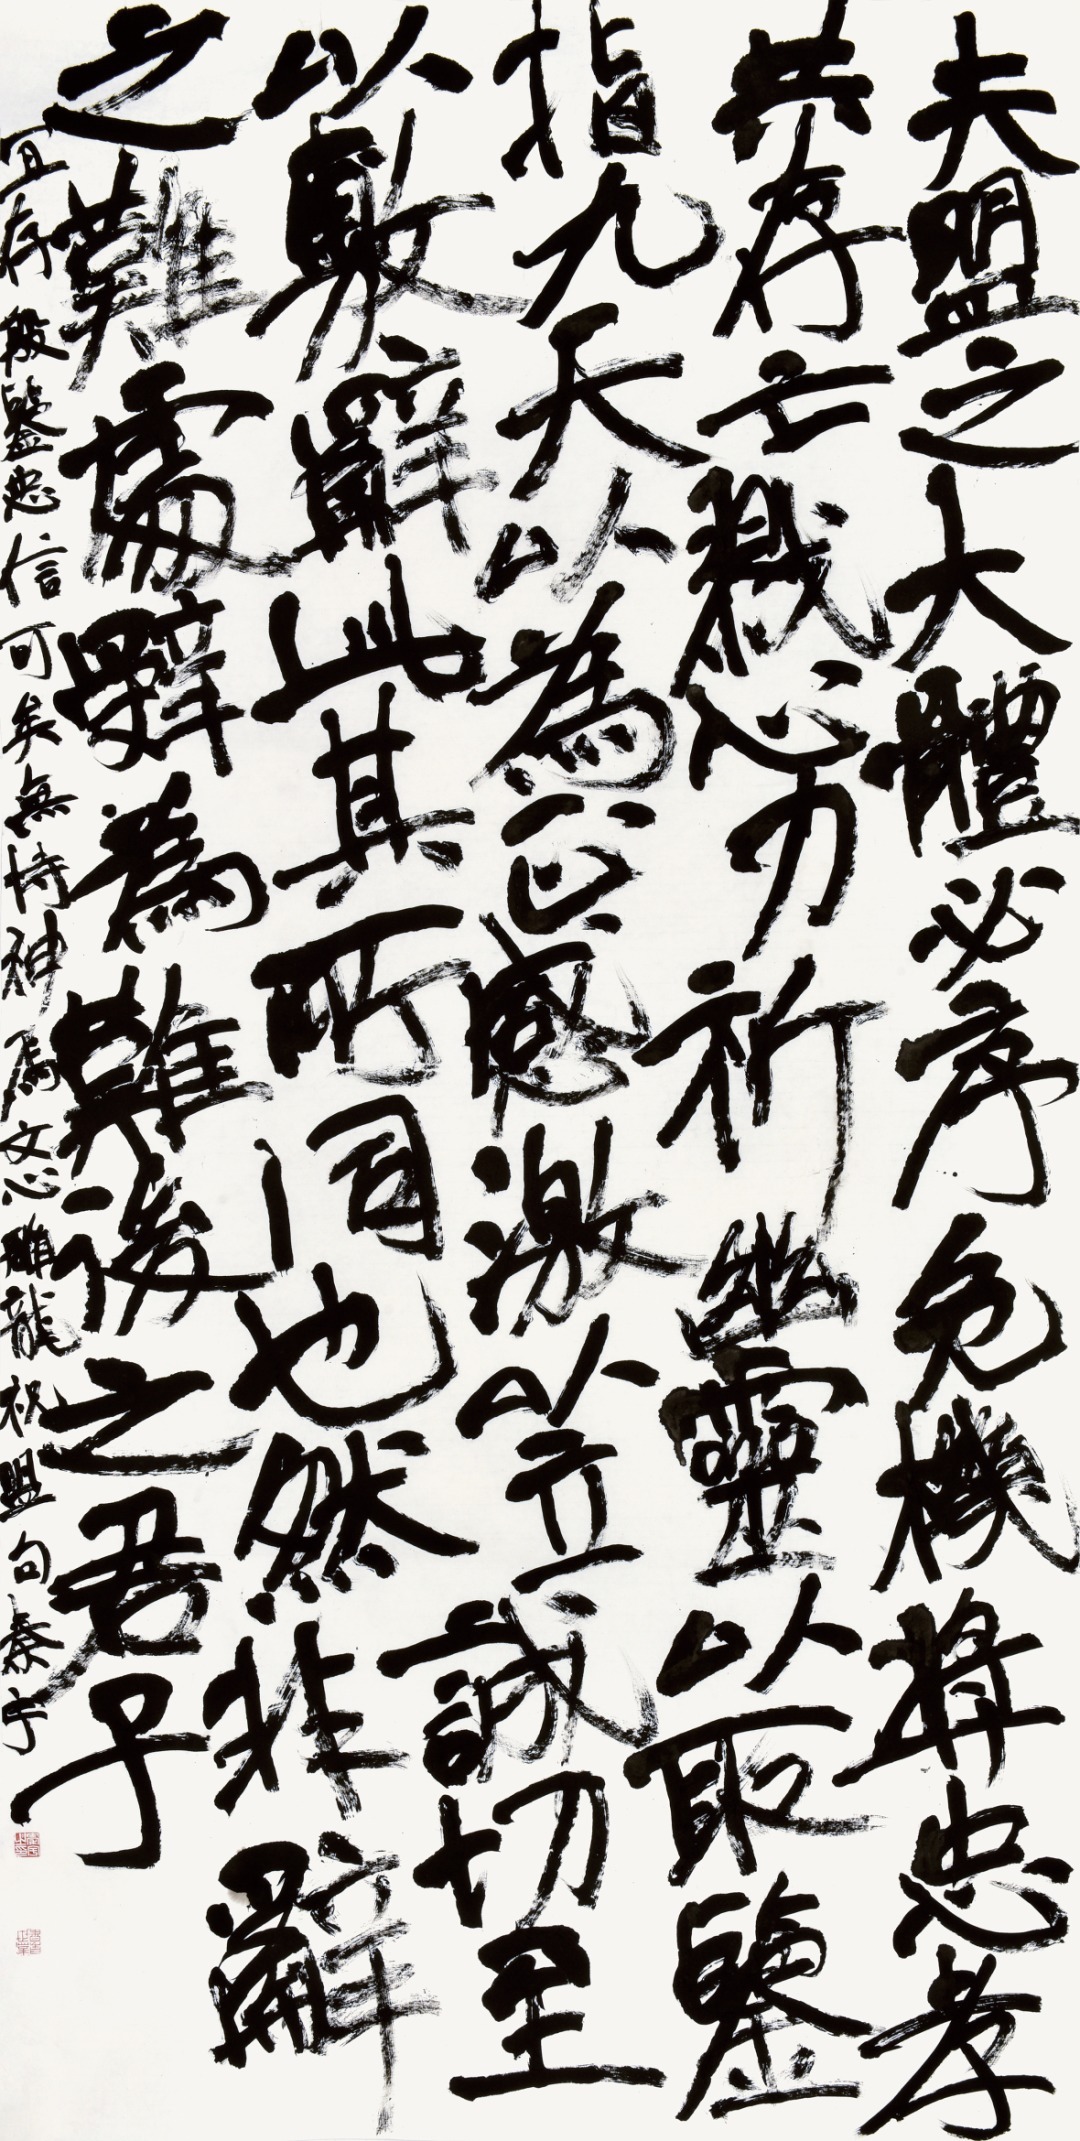 夫盟之大體必序危機奬忠孝
共存亡戮心力祈幽靈以取鑒
指九天以為正感激以立誠切至
以敷辭此其所同也然非辭
之難處辭為難後之君子
宜存殷鑒忠信可矣無恃神焉文心雕龍祝盟句秦